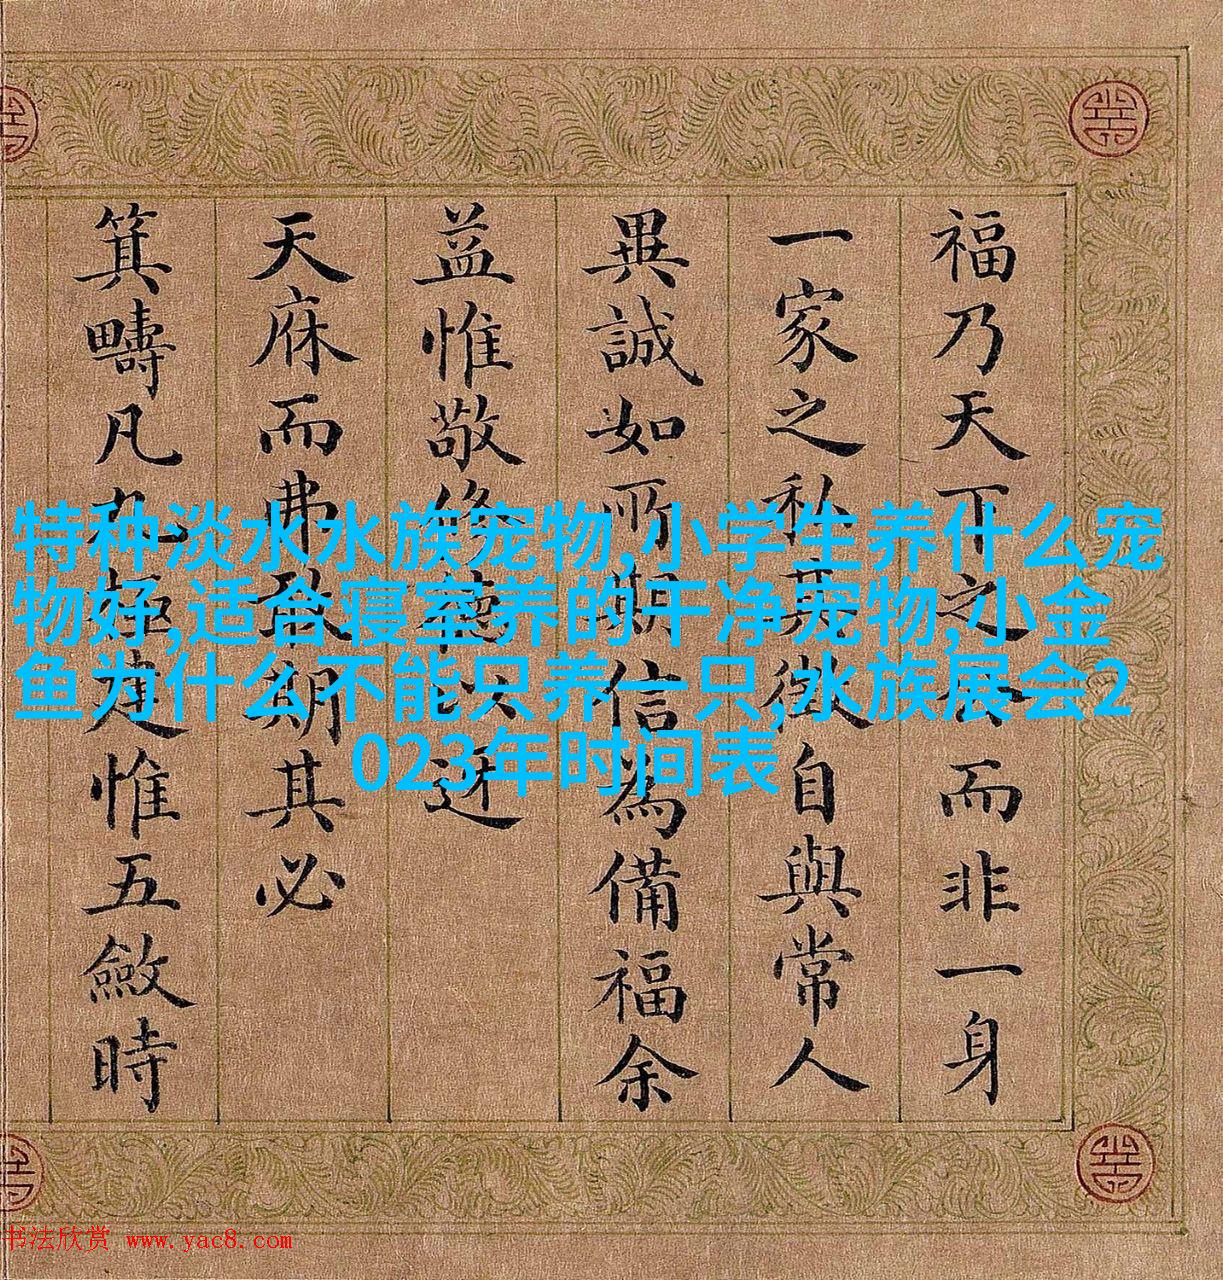 福乃天下之公而非一身
一家之私其徵自與常人
異誠如所期信為備福余
益惟敬修德以迓
天庥而弗敢期其必
箕疇凡九極建惟五斂時
特种淡水水族宠物,小学生养什么宠
物好,适合寝室养的干净宠物,小金
鱼为什么不能只养一只,水族展会2
023年时间表
书法欣赏 www.yac8.com